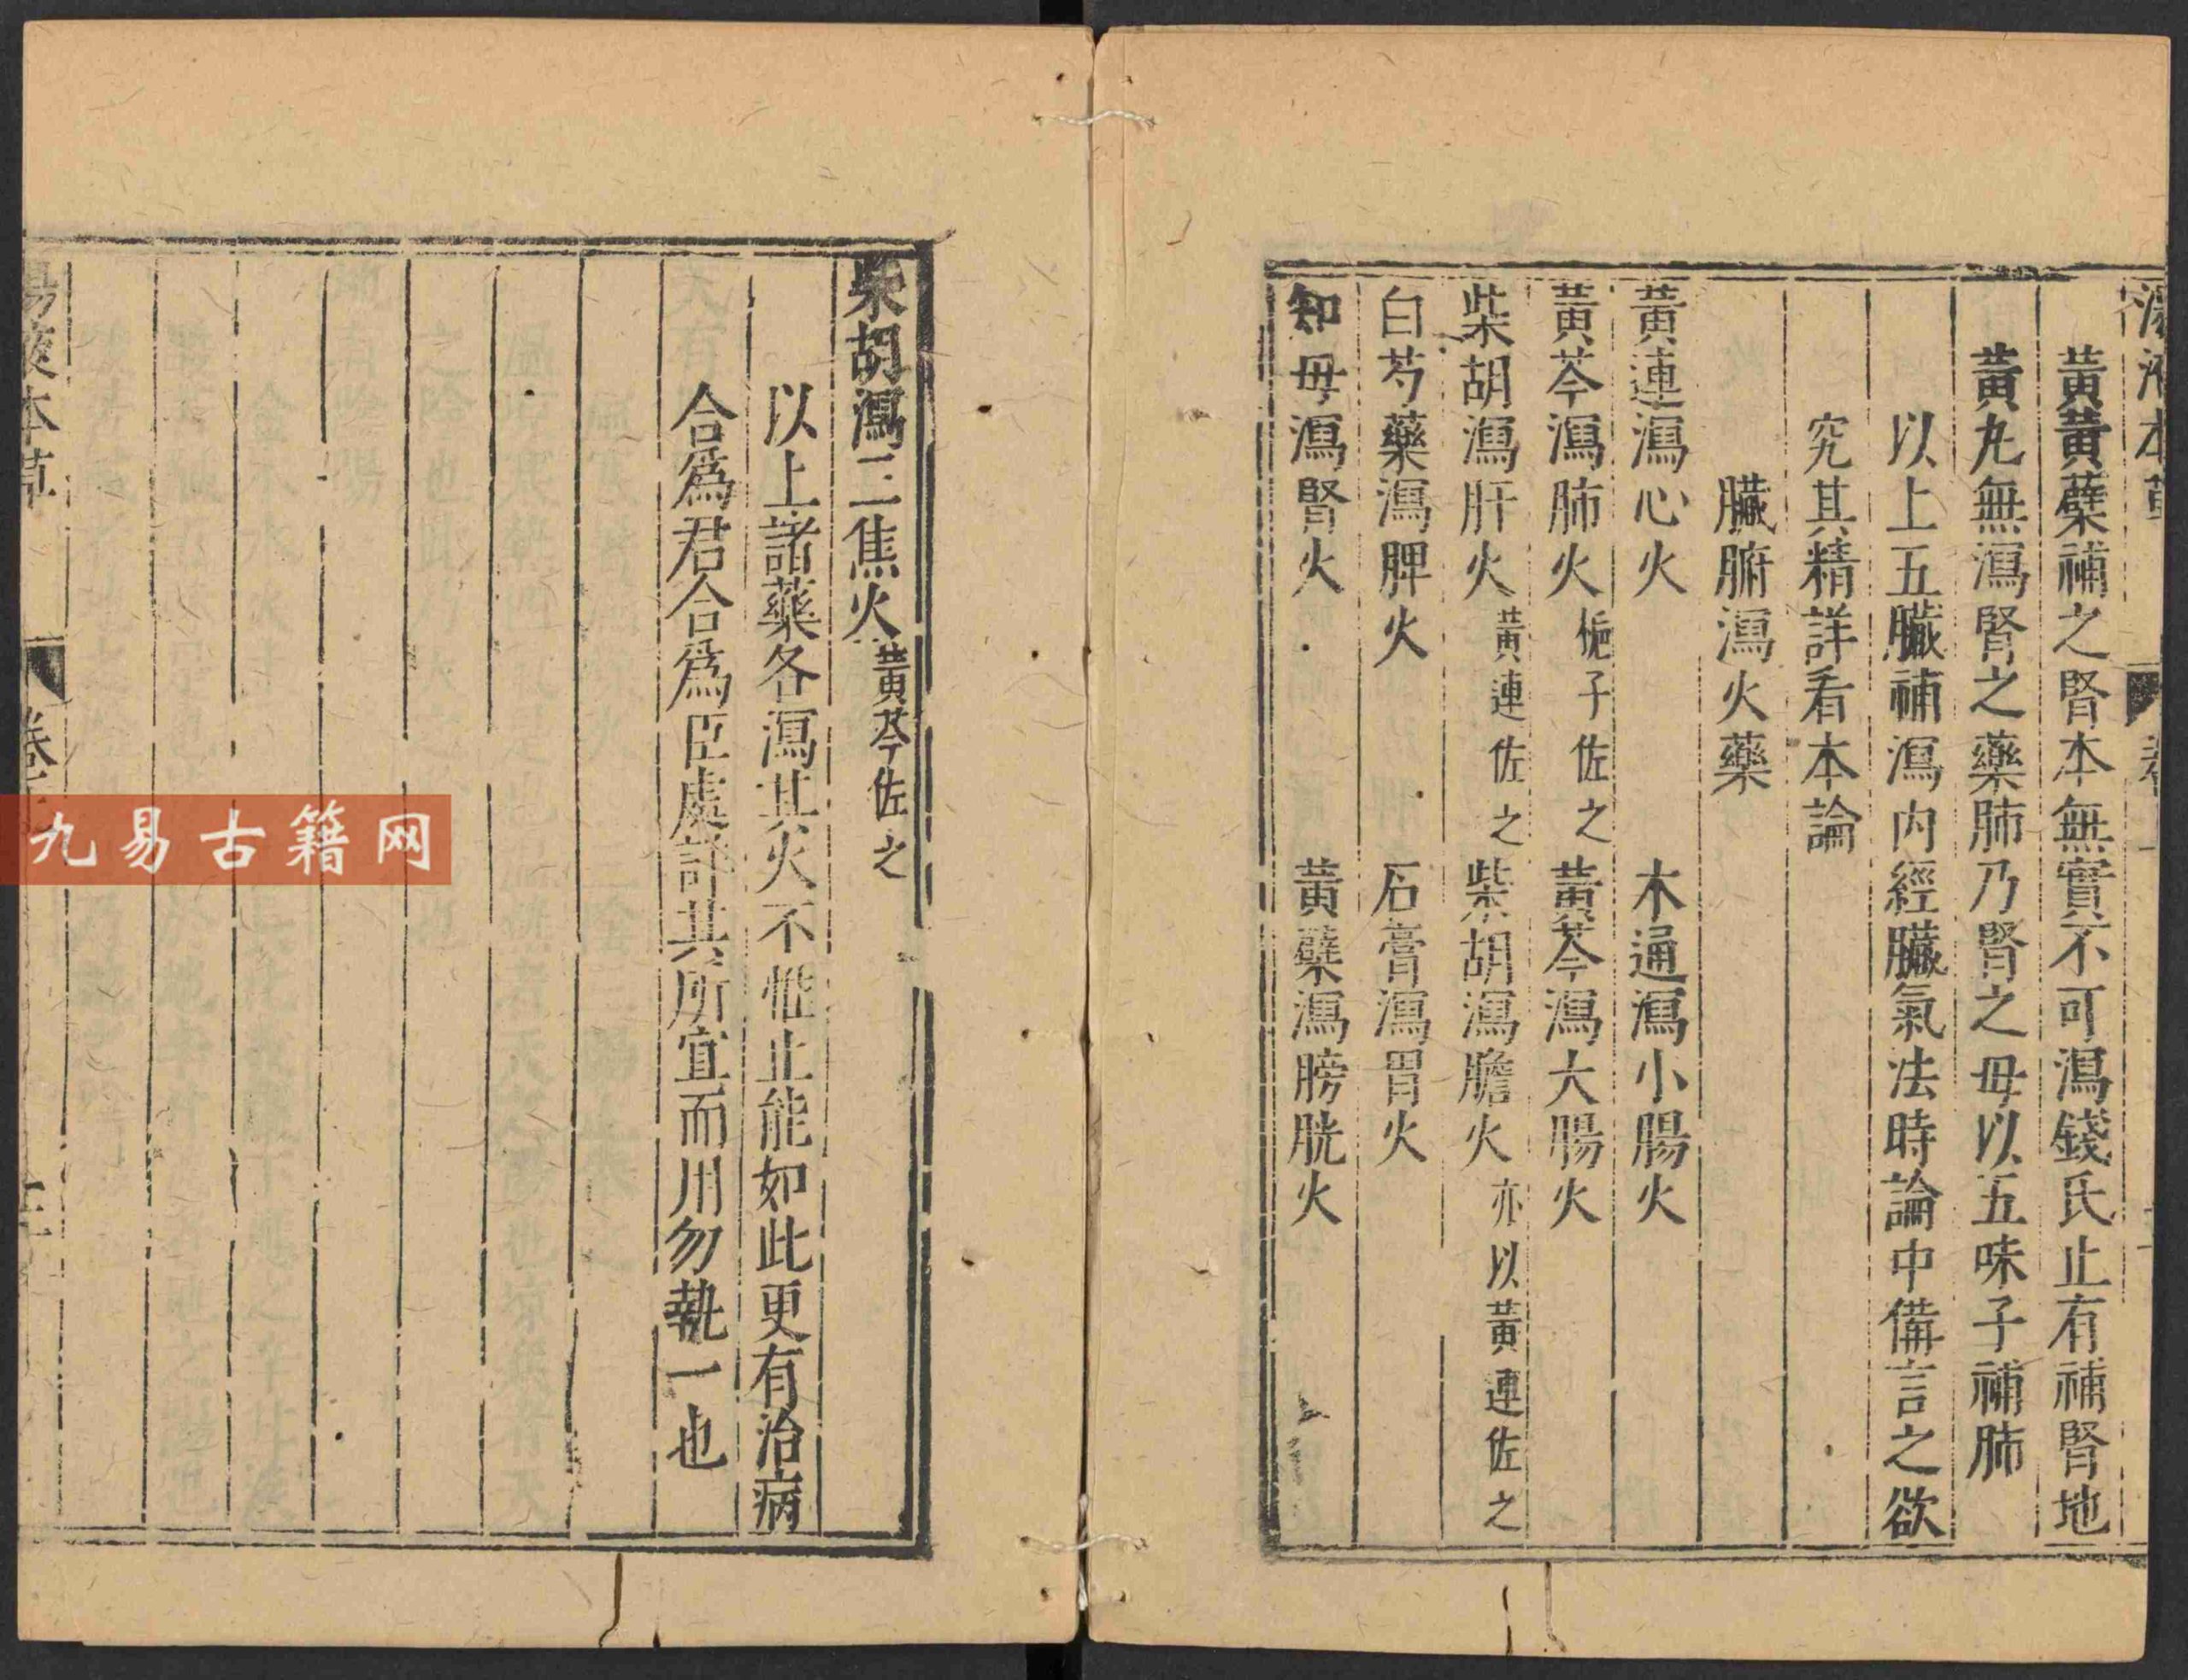 湯液本草 卷上
黃黃蘗補之腎本無實不可瀉錢氏止有補腎地
黃丸無瀉腎之藥肺乃腎之母以五味子補肺
以上五臟補瀉內經臟氣法時論中備言之欲
究其精詳看本論
臟腑瀉火藥
黃連瀉心火 木通瀉小腸火
黃芩瀉肺火梔子佐之 黃芩瀉大腸火
柴胡瀉肝火黃連佐之 柴胡瀉膽火亦以黃連佐之
白芍藥瀉脾火 石膏瀉胃火
知母瀉腎火 黃蘗瀉膀胱火
柴胡瀉三焦火黃芩佐之
以上諸藥各瀉其火不惟止能如此更有治病
合為君合為臣處詳其所宜而用勿執一也
湯液本草 卷上
九易古籍网